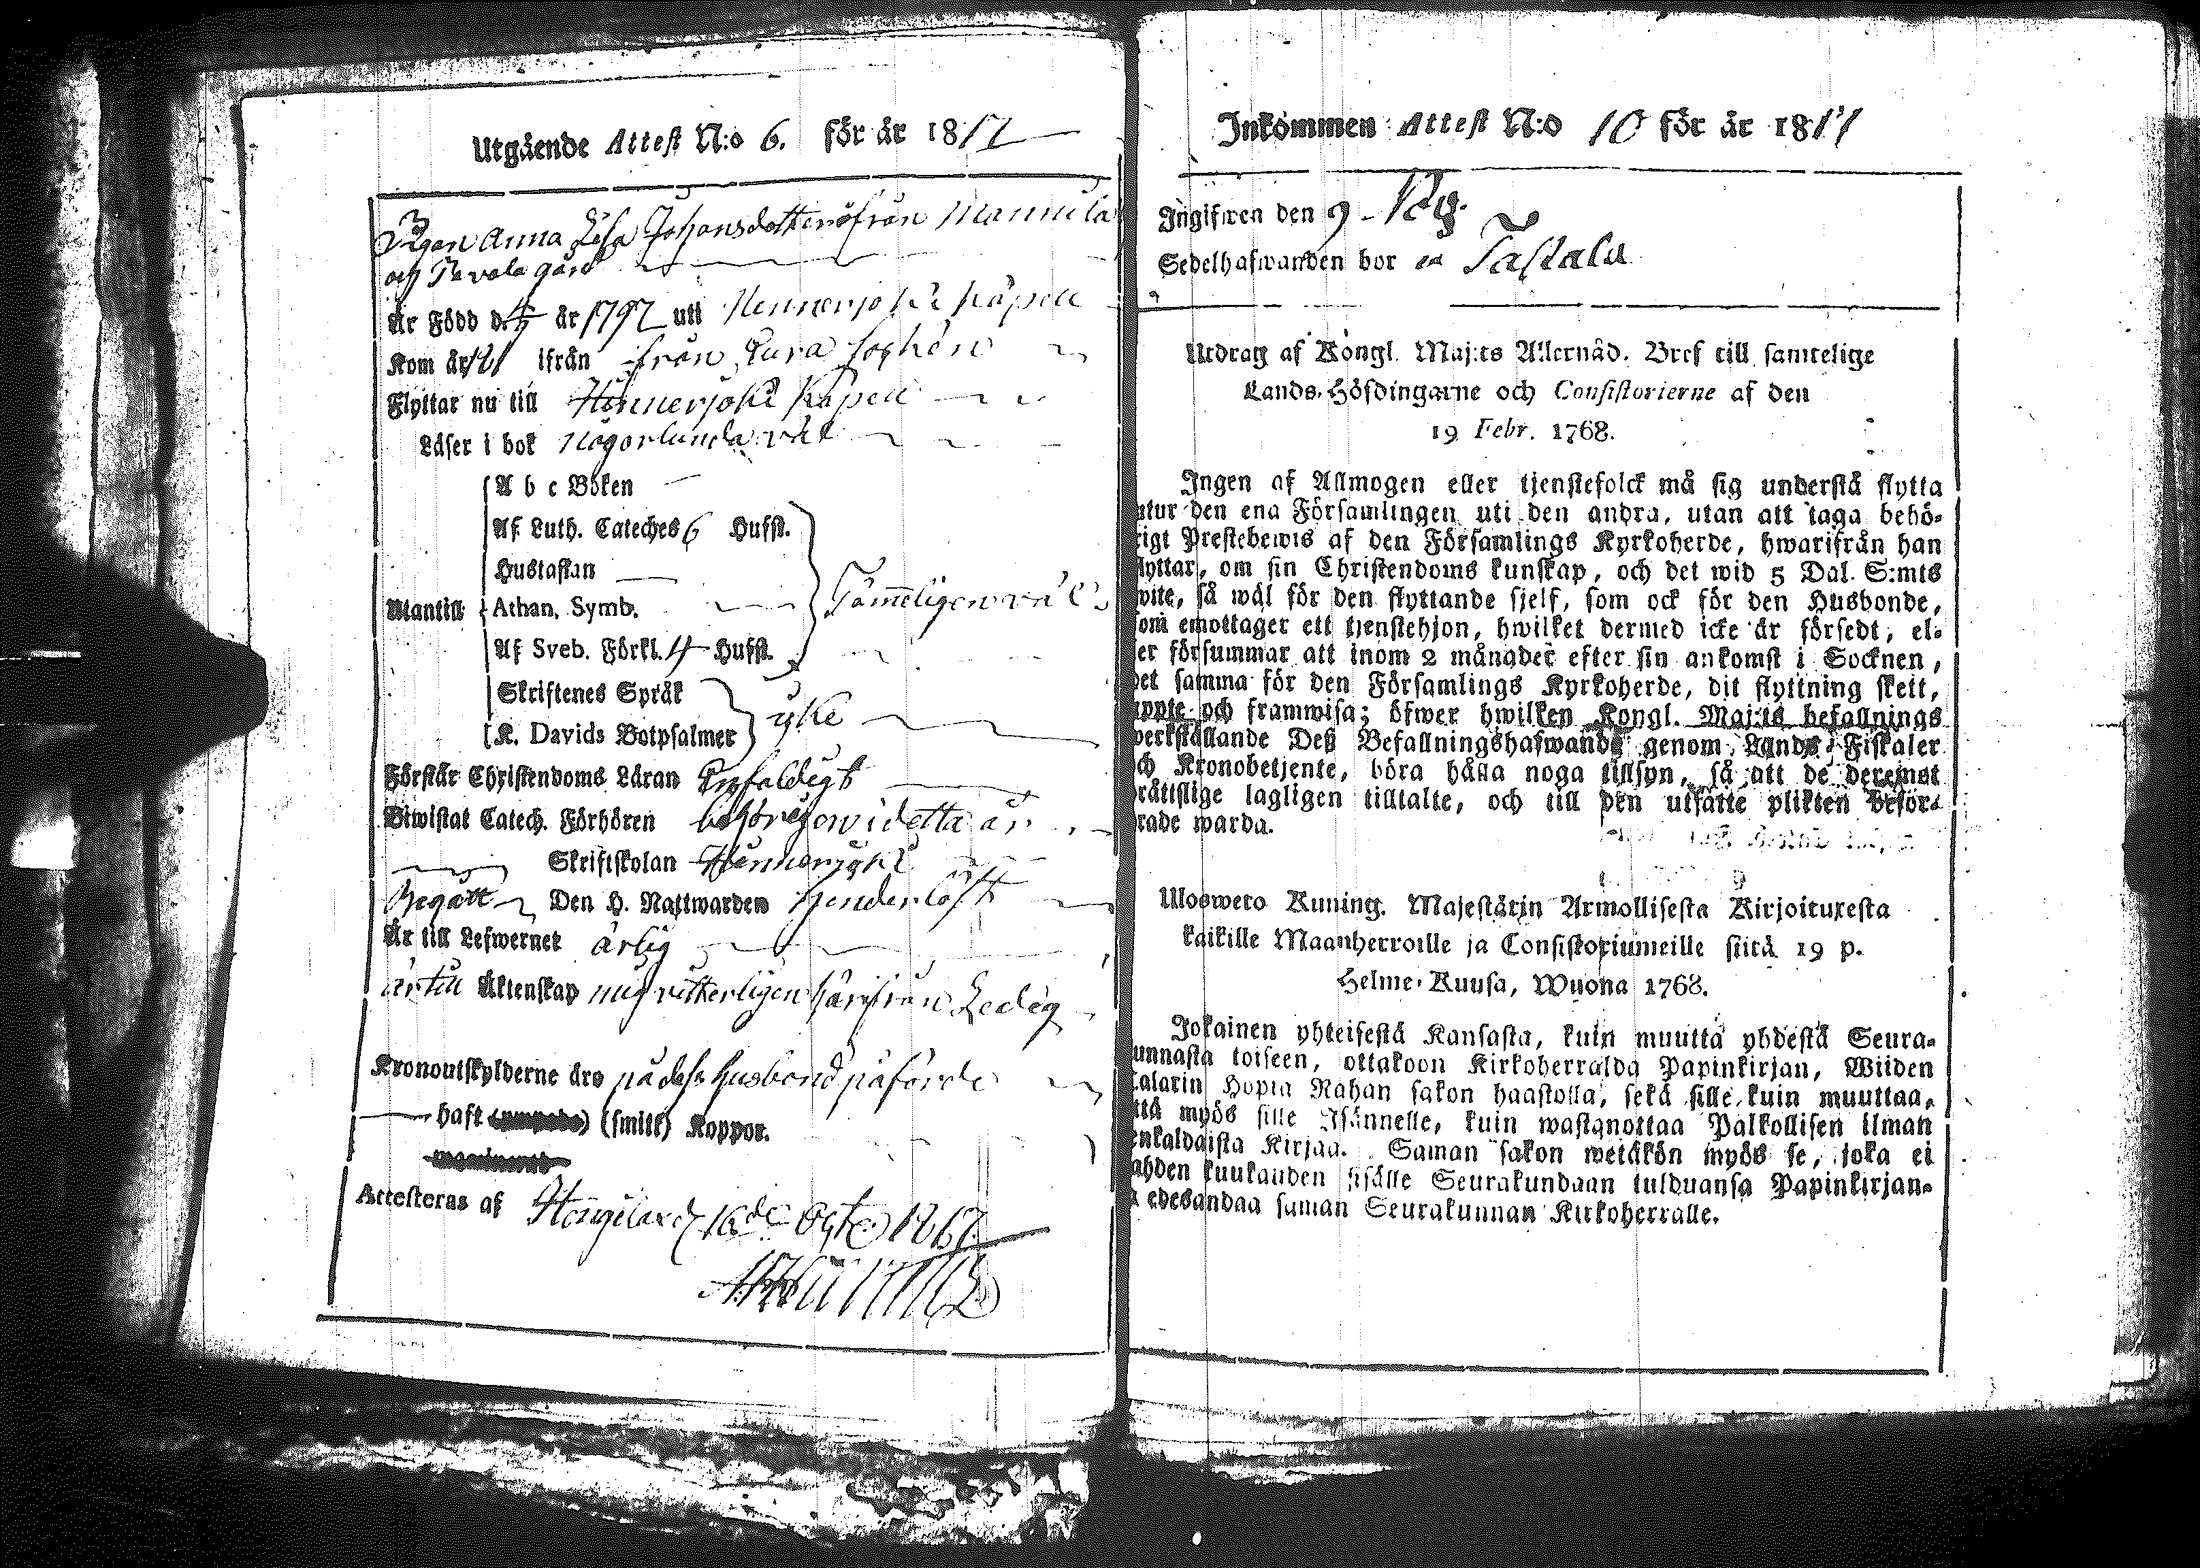 Utgående Attest N:o 6. för år 1817
Pigan Anna Lisa Johansdotter ifrån Mannila
och Pavola gård
Är Född d. år 1797 uti Hinnerjoki Kapell
Kom år ifrån ifrån Eura Sochen
Flyttar nu till Hinnerjoki Kapell
Läser i bok någorlunda väl
A b c Boken
Af Luth. Cateches 6 Hufst.
Hustaflan
Utantill Athan. Symb. Tämmeligen väl
Af Sveb. Förkl. 4 Hufst.
Skriftenes Språk
K. Davids Botpsalmer
Förstår Christendoms Läran Enfaldigt
Biwistat Catech. Förhören behörigen i detta år
Skriftskolan Hinnerjoki
Begått Den H. Nattwarden
Är till Lefwernet ärlig
är till Äktenskap mig vitterligen härifrån Ledig
Kronoutskylderne äro på dess husbond påförde
haft (smitt) Koppor.
Attesteras af
Inkommen Attest N:o 10 för år 1817
Ingifwen den 9
Sedelhafwanden bor
Utdrag af Kongl. Maj:ts Allernåd. Bref till samtelige
Lands-Höfdingarne och Consistorierne af den
19 Febr. 1768.
Ingen af Allmogen eller tjenstefolck må sig understå flytta
utur den ena Församlingen uti den andra, utan att taga behö-
rigt Prestebewis af den Församlings Kyrkoherde, hwarifrån han
flyttar, om sin Christendoms kunskap, och det wid 5 Dal. S:mts
wite, så wäl för den flyttande sjelf, som ock för den Husbonde,
som emottager ett tjenstehjon, hwilket dermed icke är försedt, el-
ler försummar att inom 2 månader efter sin ankomst i Socknen,
det samma för den Församlings Kyrkoherde, dit flyttning skett,
uppte och framwisa; öfwer hwilken Kongl. Maj:ts befallnings
werkställande Deß Befallningshafwande genom Lands-Fiskaler
och Kronobetjente, böra hålla noga tillsyn, så att de deremot
brättslige lagligen tilltalte, och till den utsatte plikten beför-
drade warda.
Ulosweto Kuning. Majestätin Armollisesta Kirjoituxesta
kaikille Maanherroille ja Consistoriumeille siitä 19 p.
Helme-Kuusa, Wuona 1768.
Jokainen yhteisestä Kansasta, kuin muuttä yhdestä Seura-
kunnasta toiseen, ottakoon Kirkoherralda Papinkirjan, Wiiden
Talarin Hopia Rahan sakon haastolla, sekä sille kuin muuttaa,
että myös sille Isännelle, kuin wastanottaa Palkollisen ilman
senkaldaista Kirjaa. Saman sakon wetäkön myös se, joka ei
kahden kuukauden sisälle Seurakundaan tulduansa Papinkirjan-
sa edesandaa saman Seurakunnan Kirkoherralle.